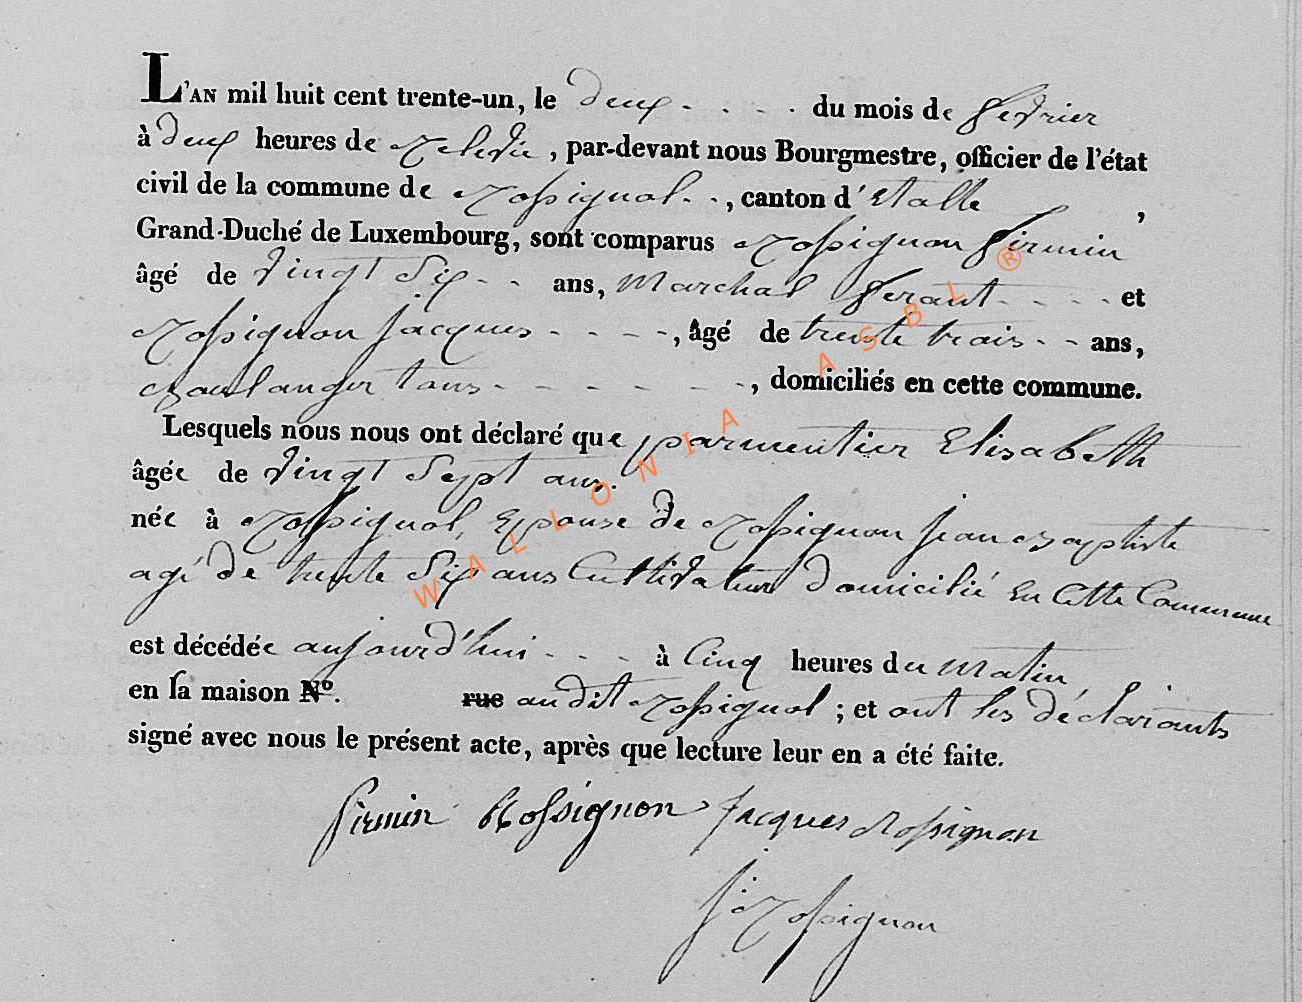 L'AN mil huit cent trente-un, le deux . . . . du mois de fevrier
à deux heures de relevée, par-devant nous Bourgmestre, officier de l'état
civil de la commune de Rossignol . . , canton d'Etalle ,
Grand-Duché de Luxembourg, sont comparus Rossignon firmin
âgé de vingt six - - ans, Marchal ferant - - - - et
Rossignon jacques - - - - -, âgé de trente trois - - ans,
Boulanger tous - - - - - - -, domiciliés en cette commune.
Lesquels nous nous ont déclaré que parmentier Elisabeth
âgée de vingt Sept ans.
née à Rossignol, Epouse de Rossignon jean Baptiste
agé de trente Six ans Cultivateur domicilié En Cette Commune
est décédée aujourd'hui - - - à Cinq heures du matin
en la maison Nº. rue audit Rossignol ; et ont les déclarants
signé avec nous le présent acte, après que lecture leur en a été faite.
firmin Rossignon jacques Rossignon
j: Rossignon
WALLONIA ASBL ®